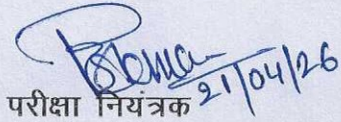 21/04/26
परीक्षा नियंत्रक